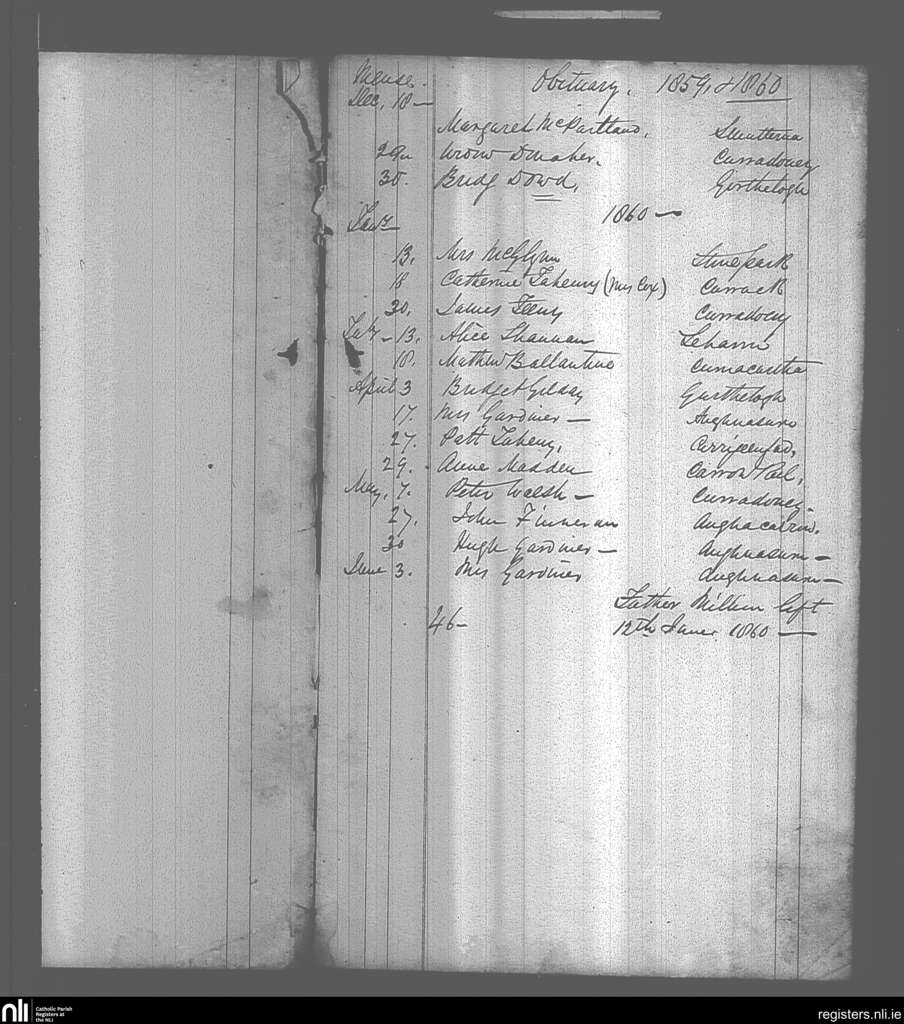 Mense.
Obituary. 1859, & 1860
Dec. 18 —
Margaret McPartland.
29 Maher.
Curradooey
30. Bridg Dowd.
Gorthelogh
1860 —
Jany
13. Mrs McGlynn
Stonepark
18 Catherine Taheny (Mrs Cox) Currack
30. James Feeny Curradoey
Feby - 13. Alice Shannan
18. Mathew Ballantine
April 3 Bridget Gilday Gurthelogh
17. Mrs Gardiner — Aughnasurn
27. Patt Taheny.
29. Anne Madden Carrow
May. 7. Peter Walsh — Curradouey.
27. John Finneran
30 Hugh Gardiner — Aughnasurn —
June 3. Mrs Gardiner Aughnasurn —
Father left
46 — 12th June 1860 —
nli Catholic Parish
Registers at
the NLI
registers.nli.ie